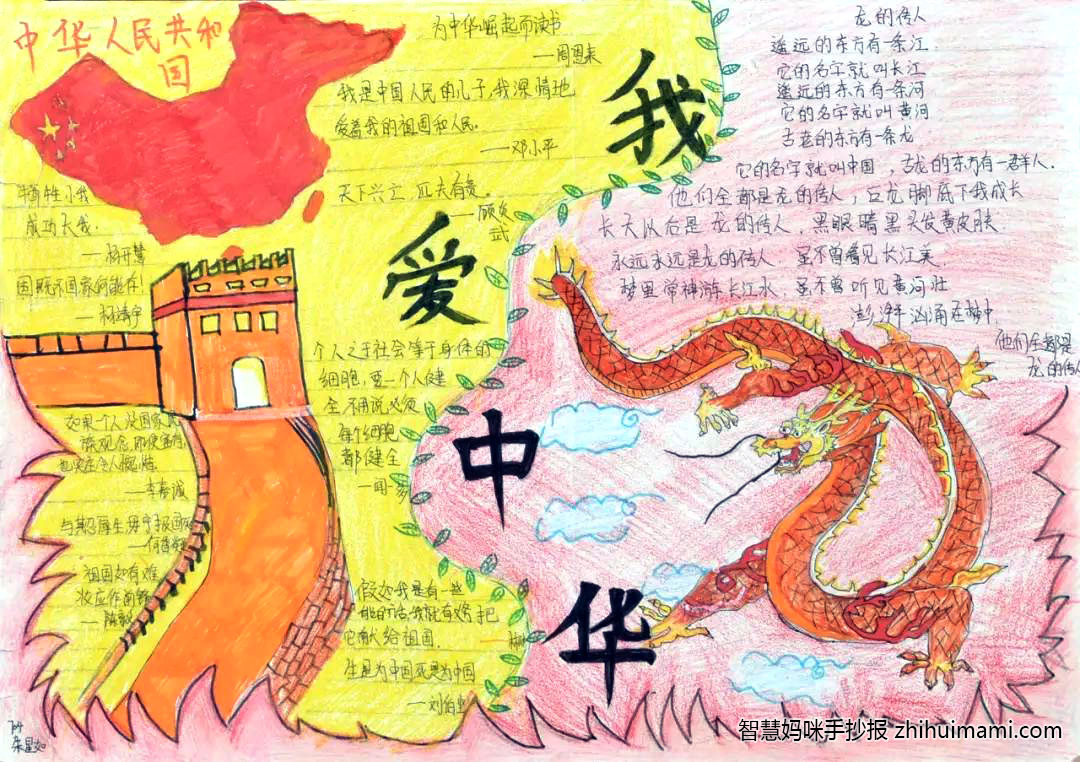 中华人民共和
国
为中华崛起而读书
——周恩来
我是中国人民的儿子,我深情地
爱着我的祖国和人民。
——邓小平
天下兴亡,匹夫有责。
——顾炎
武
牺牲小我
成功大我.
——杨开慧
国既不国家何能存!
——杨靖宇
个人之于社会等于身体的
细胞,要一个人健
全不用说必须
每个细胞
都健全
——闻一多
如果一个人没国家民
——李春诚
——何香凝
祖国如有难
——陈毅
假如我是有一些
它献给祖国.
生是为中国死是为中国
——刘伯坚
我
爱
中
华
龙的传人
遥远的东方有一条江
它的名字就叫长江
遥远的东方有一条河
它的名字就叫黄河
古老的东方有一条龙
它的名字就叫中国,古龙的东方有一群人.
他们全都是龙的传人,巨龙脚底下我成长
长大以后是龙的传人,黑眼睛黑头发黄皮肤
永远永远是龙的传人.虽不曾看见长江美
梦里常神游长江水.虽不曾听见黄河壮
澎湃汹涌在梦中.
他们全都是
龙的传人
智慧妈咪手抄报 zhihuimami.com